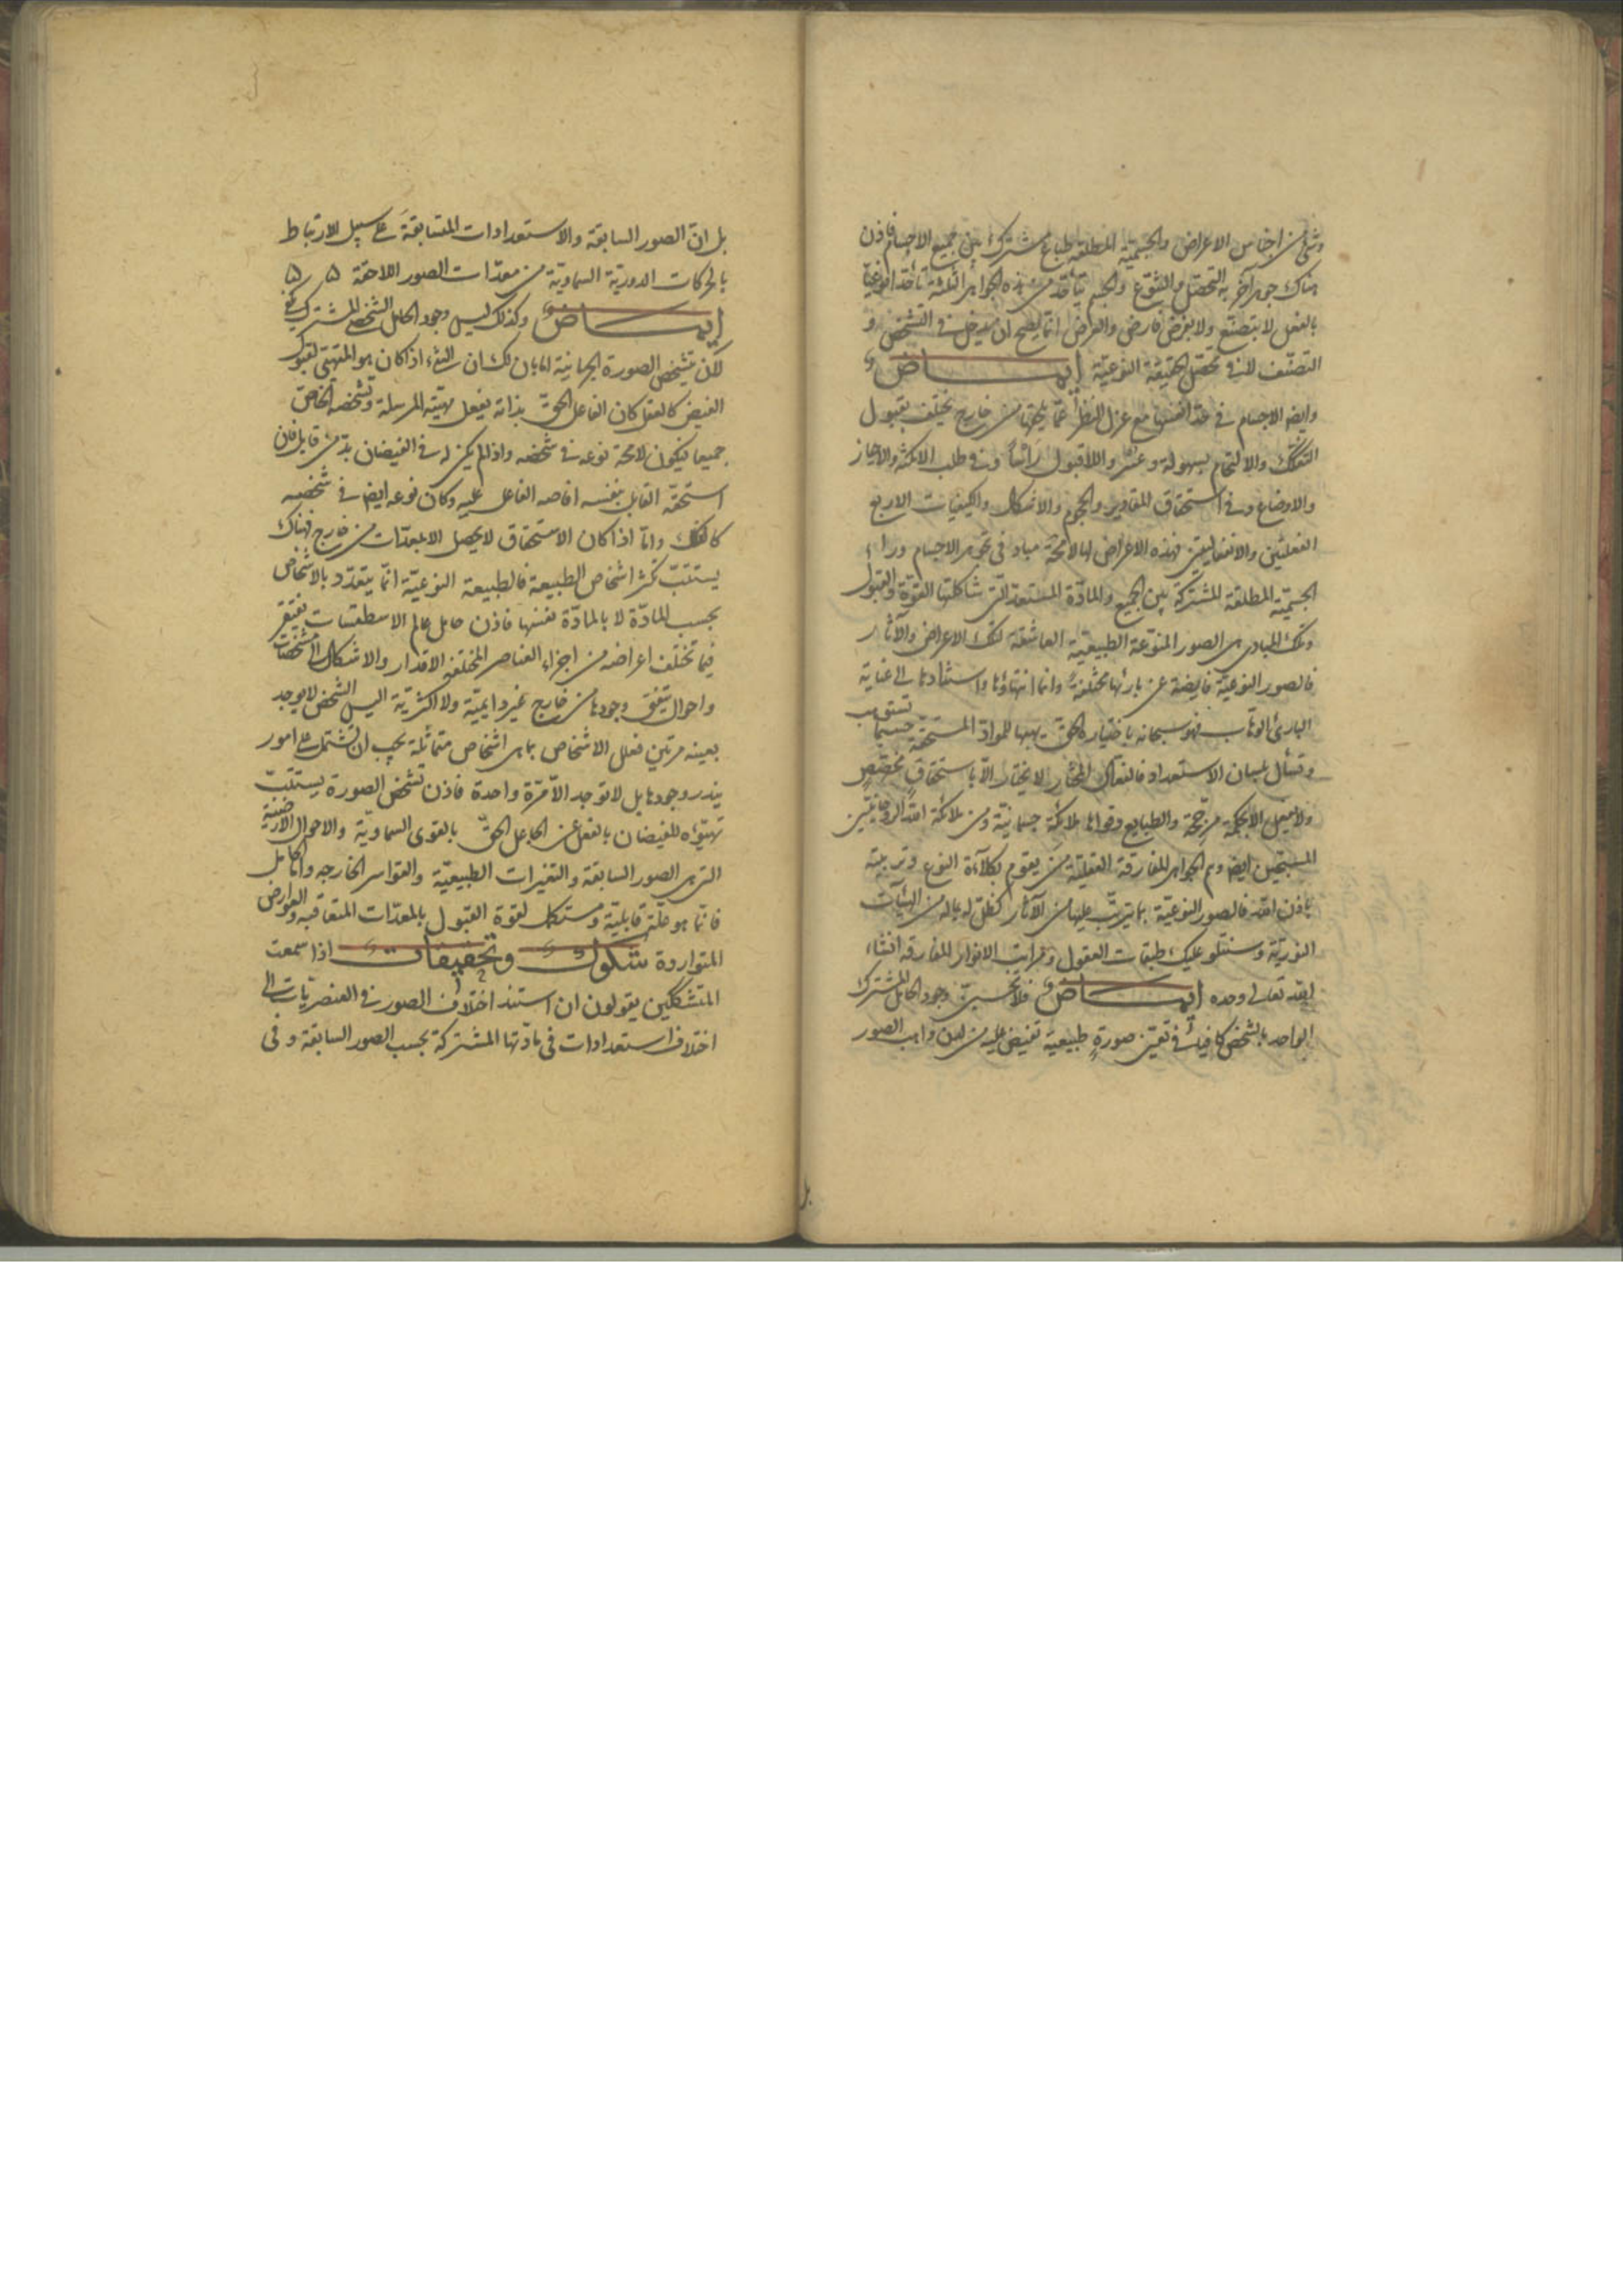 وشئ من اجناس الاعراض والجسمية المطلقة طباع مشترك بين جميع الاجسام فاذن
هناك جوهر آخر به التحصل والتنوع والجسم يتأحد من هذه الجواهر الثلثة تأحدا نوعيا
بالفعل لا بتصنع ولا بفرض فارض والعرض انما يصح ان يدخل في التشخص و
التصنف لا في تحصل الحقيقة النوعية ايماض
وايضا الاجسام في حد انفسها مع عزل النظر عما يلحقها من خارج يختلف بقبول
التفكك والالتحام بسهولة وعسر واللاقبول رأسا وفي طلب الامكنة والاحياز
والاوضاع وفي استحقاق المقادير والحجوم والاشكال والكيفيات الاربع
الفعليتين والانفعاليتين فهذه الاعراض لها لا محة مباد في تجوهر الاجسام وراء
الجسمية المطلقة المشتركة بين الجميع والمادة المستعدة التي شاكلتها القوة والقبول
وتلك المبادى هى الصور المنوعة الطبيعية العاشقة لتلك الاعراض والآثار
فالصور النوعية فايضة عن بارئها مختلفة وانما انتهاؤها واستنادها الى عناية
البارئ الوهاب فهو سبحانه باختياره الحق يهبها للمواد المستحقة حسبما تستوهب
وتسأل بلسان الاستعداد فالفعال المختار لا يختار الا باستحقاق مخصص
ولا يفعل الا بحكمة مرجحة والطبايع وقواها ملائكة جسمانية ومن ملائكة الله الروحانيين
المسبحين ايضا وهم الجواهر المفارقة العقلية من يقوم بكلاءة النوع وتربيته
باذن الله فالصور النوعية بما يترتب عليها من الآثار كظل له بما له من الهيآت
النورية وسنتلو عليك طبقات العقول ومراتب الانوار المفارقة انشاء
الله تعالى وحده ايماض فلا تحسبن وجود الحامل المشترك
الواحد بالشخص كافيا في تعين صورة طبيعية تفيض عليه من لدن واهب الصور
بل
بل ان الصور السابقة والاستعدادات المتسابقة على سبيل الارتباط
بالحركات الدورية السماوية من معدات الصور اللاحقة
ايماض وكذلك ليس وجود الحامل الشخصى المشترك يكفى
لان يتشخص الصورة الجرمانية اما بان لك ان الشئ اذا كان هو المتهيئ لقبول
الفيض كالعقل كان الفاعل الحق بذاته يفعل مهيته المرسلة وتشخصه الخاص
جميعا فيكون لا محة نوعه في شخصه واذا لم يكن له في الفيضان بد من قابل فان
استحقه القابل بنفسه افاضه الفاعل عليه وكان نوعه ايضا في شخصه
كالفلك واما اذا كان الاستحقاق لا يحصل الا بمعدات من خارج فهناك
يستتب تكثر اشخاص الطبيعة فالطبيعة النوعية انما يتعدد بالاشخاص
بحسب المادة لا بالمادة نفسها فاذن حامل عالم الاسطقسات يفتقر
فيما تختلف اعراضه من اجزاء العناصر المختلفة الاقدار والاشكال الى مشخصات
واحوال يتفق وجودها من خارج غير دايمية ولا اكثرية اليس الشخص لا يوجد
بعينه مرتين فعلل الاشخاص بما هى اشخاص متماثلة يجب ان تشتمل على امور
يندر وجودها بل لا توجد الا مرة واحدة فاذن تشخص الصورة يستتب
تهيؤه للفيضان بالفعل عن الجاعل الحق بالقوى السماوية والاحوال الارضية
التى هى الصور السابقة والتغيرات الطبيعية والقواسر الخارجه والحامل
فانما هو علة قابلية ومستكمل لقوة القبول بالمعدات المتعاقبه والعوارض
المتواردة شكوك وتحقيقات اذا سمعت
المتشككين يقولون ان استند اختلاف الصور في العنصريات الى
اختلاف استعدادات في مادتها المشتركة بحسب الصور السابقة و فى